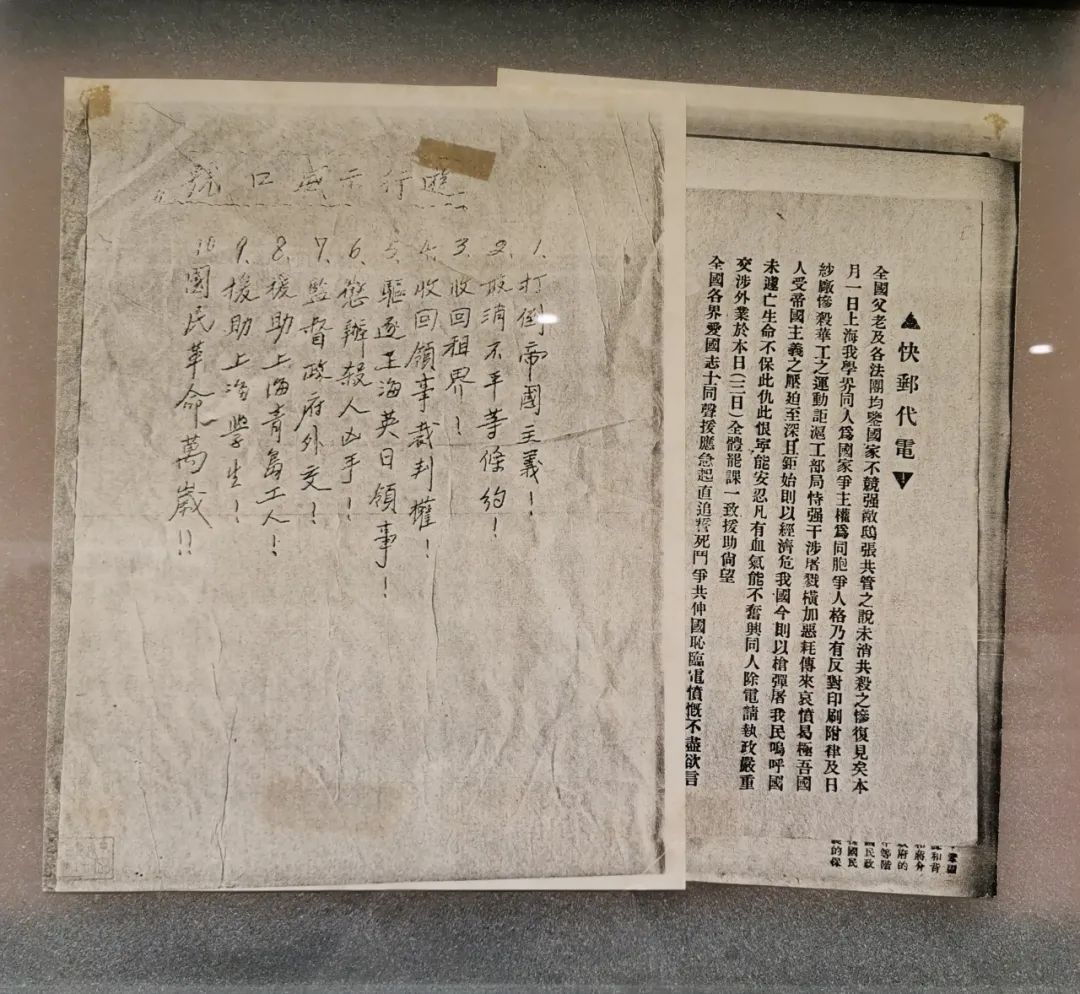 游行示威口號
1. 打倒帝國主義！
2. 取消不平等條約！
3. 收回租界！
4. 收回領事裁判權！
5. 驅逐上海英日領事！
6. 懲辦殺人凶手！
7. 監督政府外交！
8. 援助上海青島工人！
9. 援助上海學生！
10 國民革命萬歲!!
▲快郵代電▼
全國父老及各法團均鑒國家不競强敵鴟張共管之說未消共殺之慘復見矣本
月一日上海我學界同人爲國家爭主權爲同胞爭人格乃有反對印刷附律及日
紗廠慘殺華工之運動詎滬工部局恃强干涉屠戮橫加惡耗傳來哀憤曷極吾國
人受帝國主義之壓迫至深且鉅始則以經濟危我國今則以槍彈屠我民嗚呼國
未遽亡生命不保此仇此恨寧能安忍凡有血氣能不奮興同人除電請執政嚴重
交涉外業於本日（三日）全體罷課一致援助尙望
全國各界愛國志士同聲援應急起直追誓死鬥爭共伸國恥臨電憤慨不盡欲言